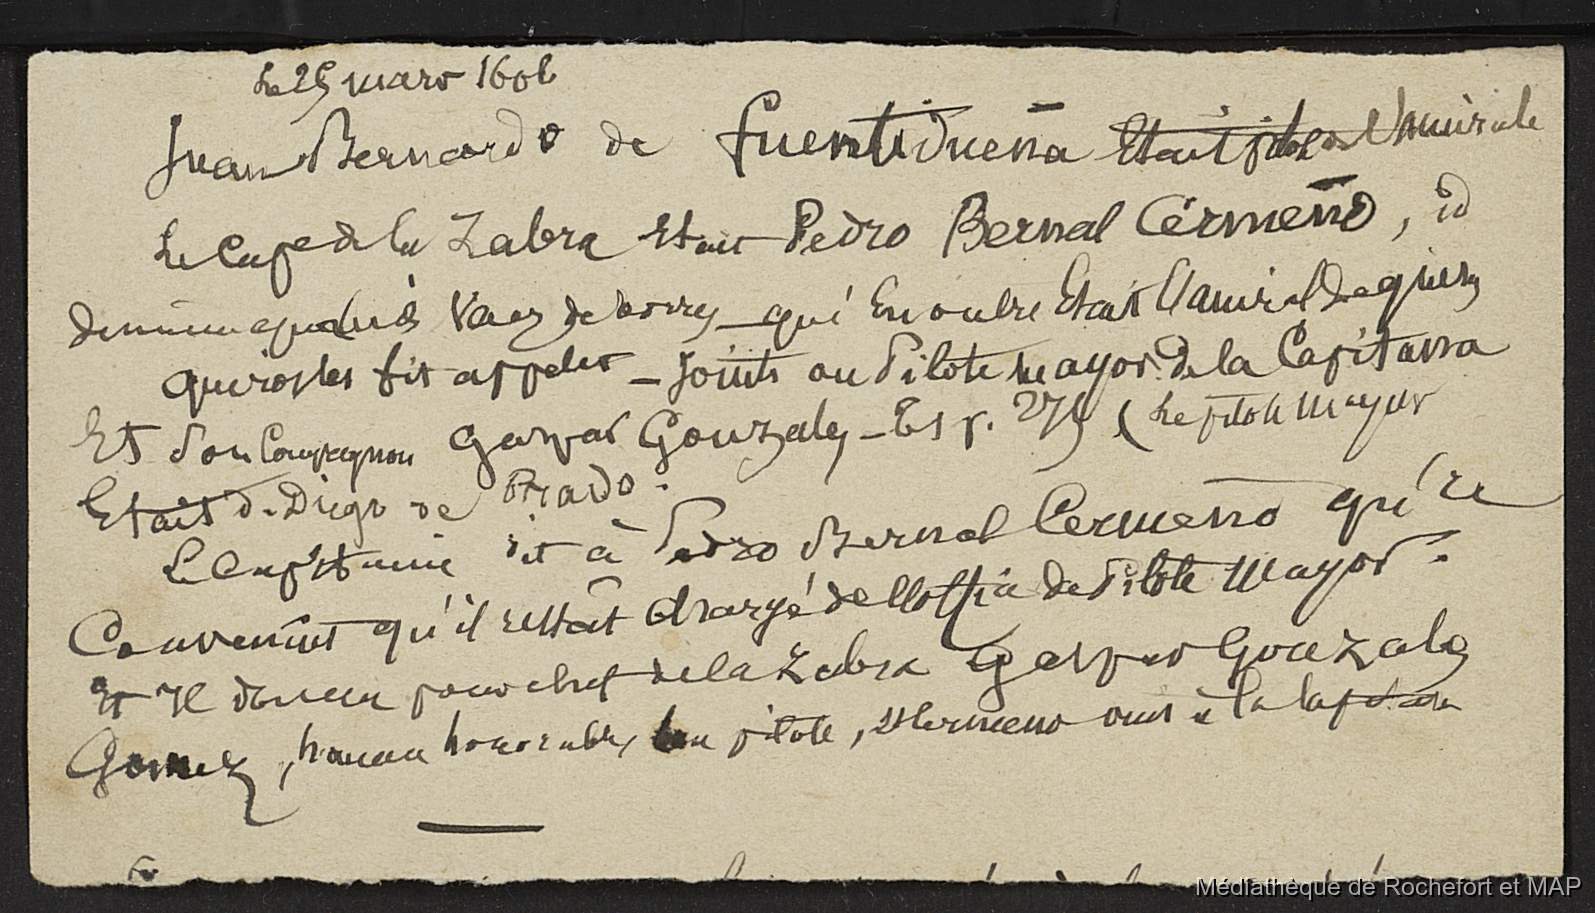 Le 25 mars 1606
Juan Bernardo de Fuentidueña Etait pilote de l'amirale
Le Cap. de la Zabra Etait Pedro Bernal Cermeño, id
de même que Luis Vaez de Torres — qui En outre Etait l'amiral
Quiros les fit appeler — Joints au Pilote mayor de la Capitana
Et son Compagnon Gaspar Gonzalez — Es p. 275 (Le pilote Mayor
Etait d. Diego de Prado.
Le Capitaine dit à Pedro Bernal Cermeno qu'il
Convenait qu'il restât chargé de l'office de Pilote Mayor.
Et Il donna pour chef de la Zabra Gaspar Gonzalez
Gomez, homme honorable, bon pilote, à la Capitana